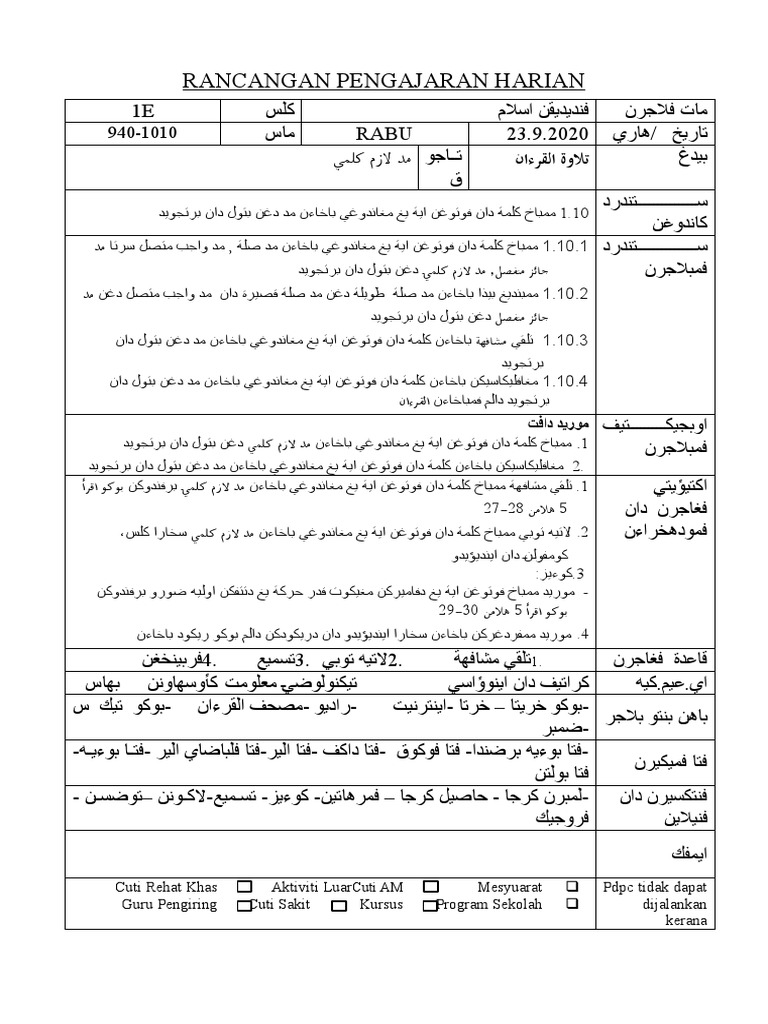 RANCANGAN PENGAJARAN HARIAN
مات فلاجرن فنديديقن اسلام کلس 1E
تاريخ /هاري 23.9.2020 RABU ماس 940-1010
بيدڠ تلاوة القرءان تــاجو مد لازم کلمي
ق
ســـــــتندرد
کاندوغن
1.10 ممباخ کلمة دان فوتوغن اية يغ مغاندوغي باخاءن مد دغن بتول دان برتجويد
ســـــــتندرد
فمبلاجرن
1.10.1 ممباخ کلمة دان فوتوغن اية يغ مغاندوغي باخاءن مد صلة , مد واجب متصل سرتا مد
جائز مفصل, مد لازم کلمي دغن بتول دان برتجويد
1.10.2 ممبنديغ بيذا باخاءن مد صلة طويلة دغن مد صلة قصيرة دان مد واجب متصل دغن مد
جائز مفصل دغن بتول دان برتجويد
1.10.3 تلقي مشافهة باخاءن کلمة دان فوتوغن اية يغ مغاندوغي باخاءن مد دغن بتول دان
برتجويد
1.10.4 مغافليکاسيکن باخاءن کلمة دان فوتوغن اية يغ مغاندوغي باخاءن مد دغن بتول دان
برتجويد دالم فمباخاءن القرءان
اوبجيکـــــتيف
فمبلاجرن
موريد دافت
1. ممباخ کلمة دان فوتوغن اية يغ مغاندوغي باخاءن مد لازم کلمي دغن بتول دان برتجويد
2. مغافليکاسيکن باخاءن کلمة دان فوتوغن اية يغ مغاندوغي باخاءن مد دغن بتول دان برتجويد
اکتيؤيتي
فغاجرن دان
فمودهخراءن
1. تلقي مشافهة ممباخ کلمة دان فوتوغن اية يغ مغاندوغي باخاءن مد لازم کلمي برفندوکن بوکو اقرأ
5 هلامن 28-27
2. لاتيه توبي ممباخ کلمة دان فوتوغن اية يغ مغاندوغي باخاءن مد لازم کلمي سخارا کلس،
کومفولن دان اينديؤيدو
3.کوءيز:
- موريد ممباخ فوتوغن اية يغ دفاميرکن مغيکوت قدر حرکة يغ دتتفکن اوليه ضورو برفندوکن
بوکو اقرأ 5 هلامن 30-29
4. موريد ممفردغرکن باخاءن سخارا اينديؤيدو دان دريکودکن دالم بوکو ريکود باخاءن
قاعدة فغاجرن 1.تلقي مشافهة 2.لاتيه توبي 3.تسميع 4.فربينخغن
اي.عيم.کيه کراتيف دان اينوؤاسي تيکنولوضي معلومت کأوسهاونن بهاس
باهن بنتو بلاجر -بوکو خريتا – خرتا -اينترنيت -راديو -مصحف القرءان -بوکو تيک س
-ضمبر
فتا فميکيرن -فتا بوءيه برضندا- فتا فوکوق -فتا داکف -فتا الير-فتا فلباضاي الير -فتـا بوءيـه-
فتا بولتن
فنتکسيرن دان
فنيلاين
-لمبرن کرجا - حاصيل کرجا – فمرهاتين- کوءيز- تسميع-لاکونن –توضسن -
فروجيک
ايمفک
Pdpc tidak dapat
dijalankan
kerana
Mesyuarat Aktiviti LuarCuti AM Cuti Rehat Khas
Program Sekolah Kursus Cuti Sakit Guru Pengiring